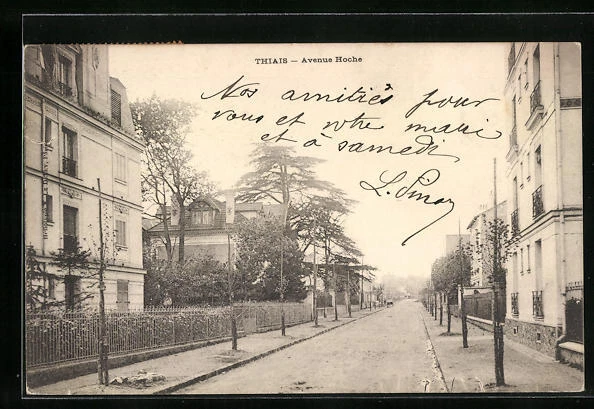 THIAIS — Avenue Hoche
Nos amitiés pour
vous et votre mari
et à samedi
L. Pinoy